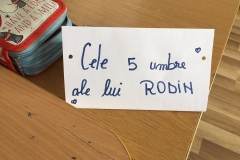 Cele 5 umbre
ale lui RODIN